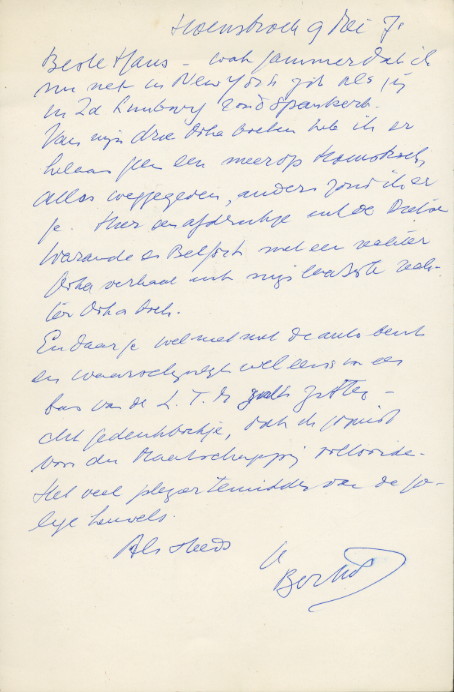 Hoensbroek 9 Mei 7
Beste Hans – wat jammer dat ik
nu net in New York zit als jij
in Zd Limburg rond
Van mijn drie boeken heb ik er
helaas geen een meer op Hoensbroek,
alles weggegeven, anders zond ik er
je. Hier een afdrukje uit de Dietse
Warande en Belfort met een
verhaal uit mijn laatste
boek.
En daar je wel niet met de auto bent
en waarschijnlijk wel eens in een
bus van de L.T.M. zult zitten –
het gedenkboekje, dat ik
voor die Maatschappij voltooide.
Het veel plezier temidden van de
lije heuvels.
Als steeds
Je
Bertus